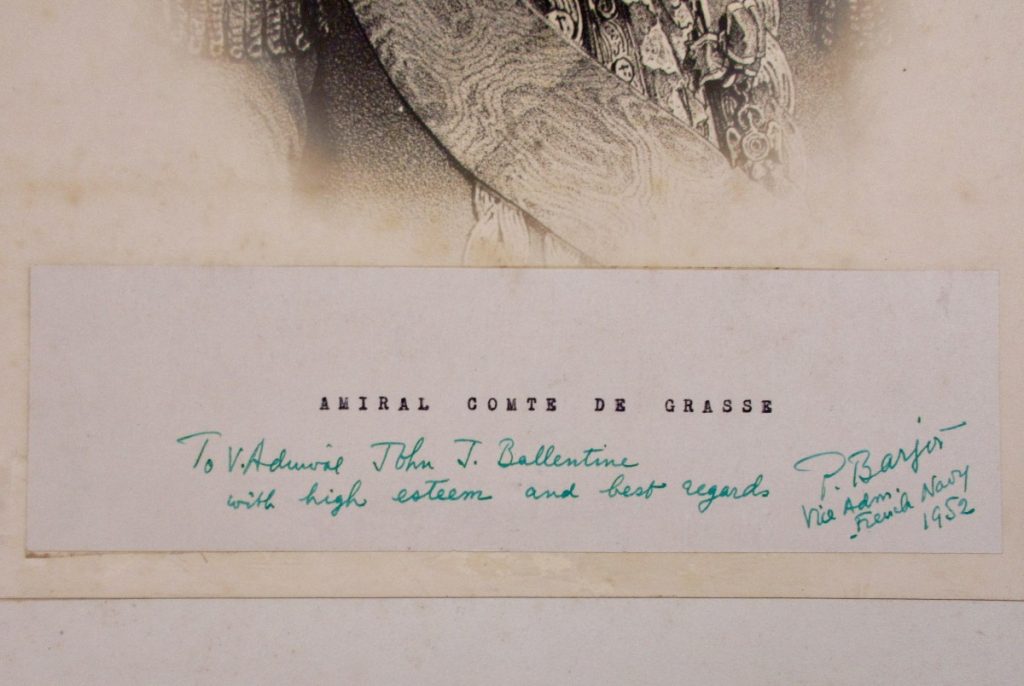 AMIRAL COMTE DE GRASSE
To V. Admiral John J. Ballentine
with high esteem and best regards
P. Barjot
Vice Adm.
French Navy
1952